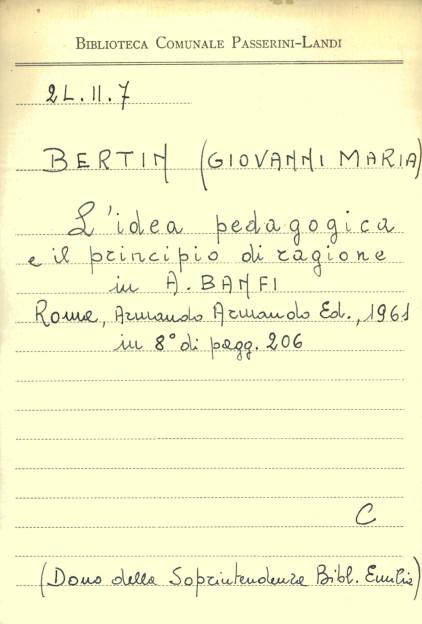 BIBLIOTECA COMUNALE PASSERINI-LANDI
2L.II.7
BERTIN (GIOVANNI MARIA)
L'idea pedagogica
e il principio di ragione
in A. BANFI
Roma, Armando Armando Ed., 1961
in 8° di pagg. 206
C
(Dono della Soprintendenza Bibl. Emilia)